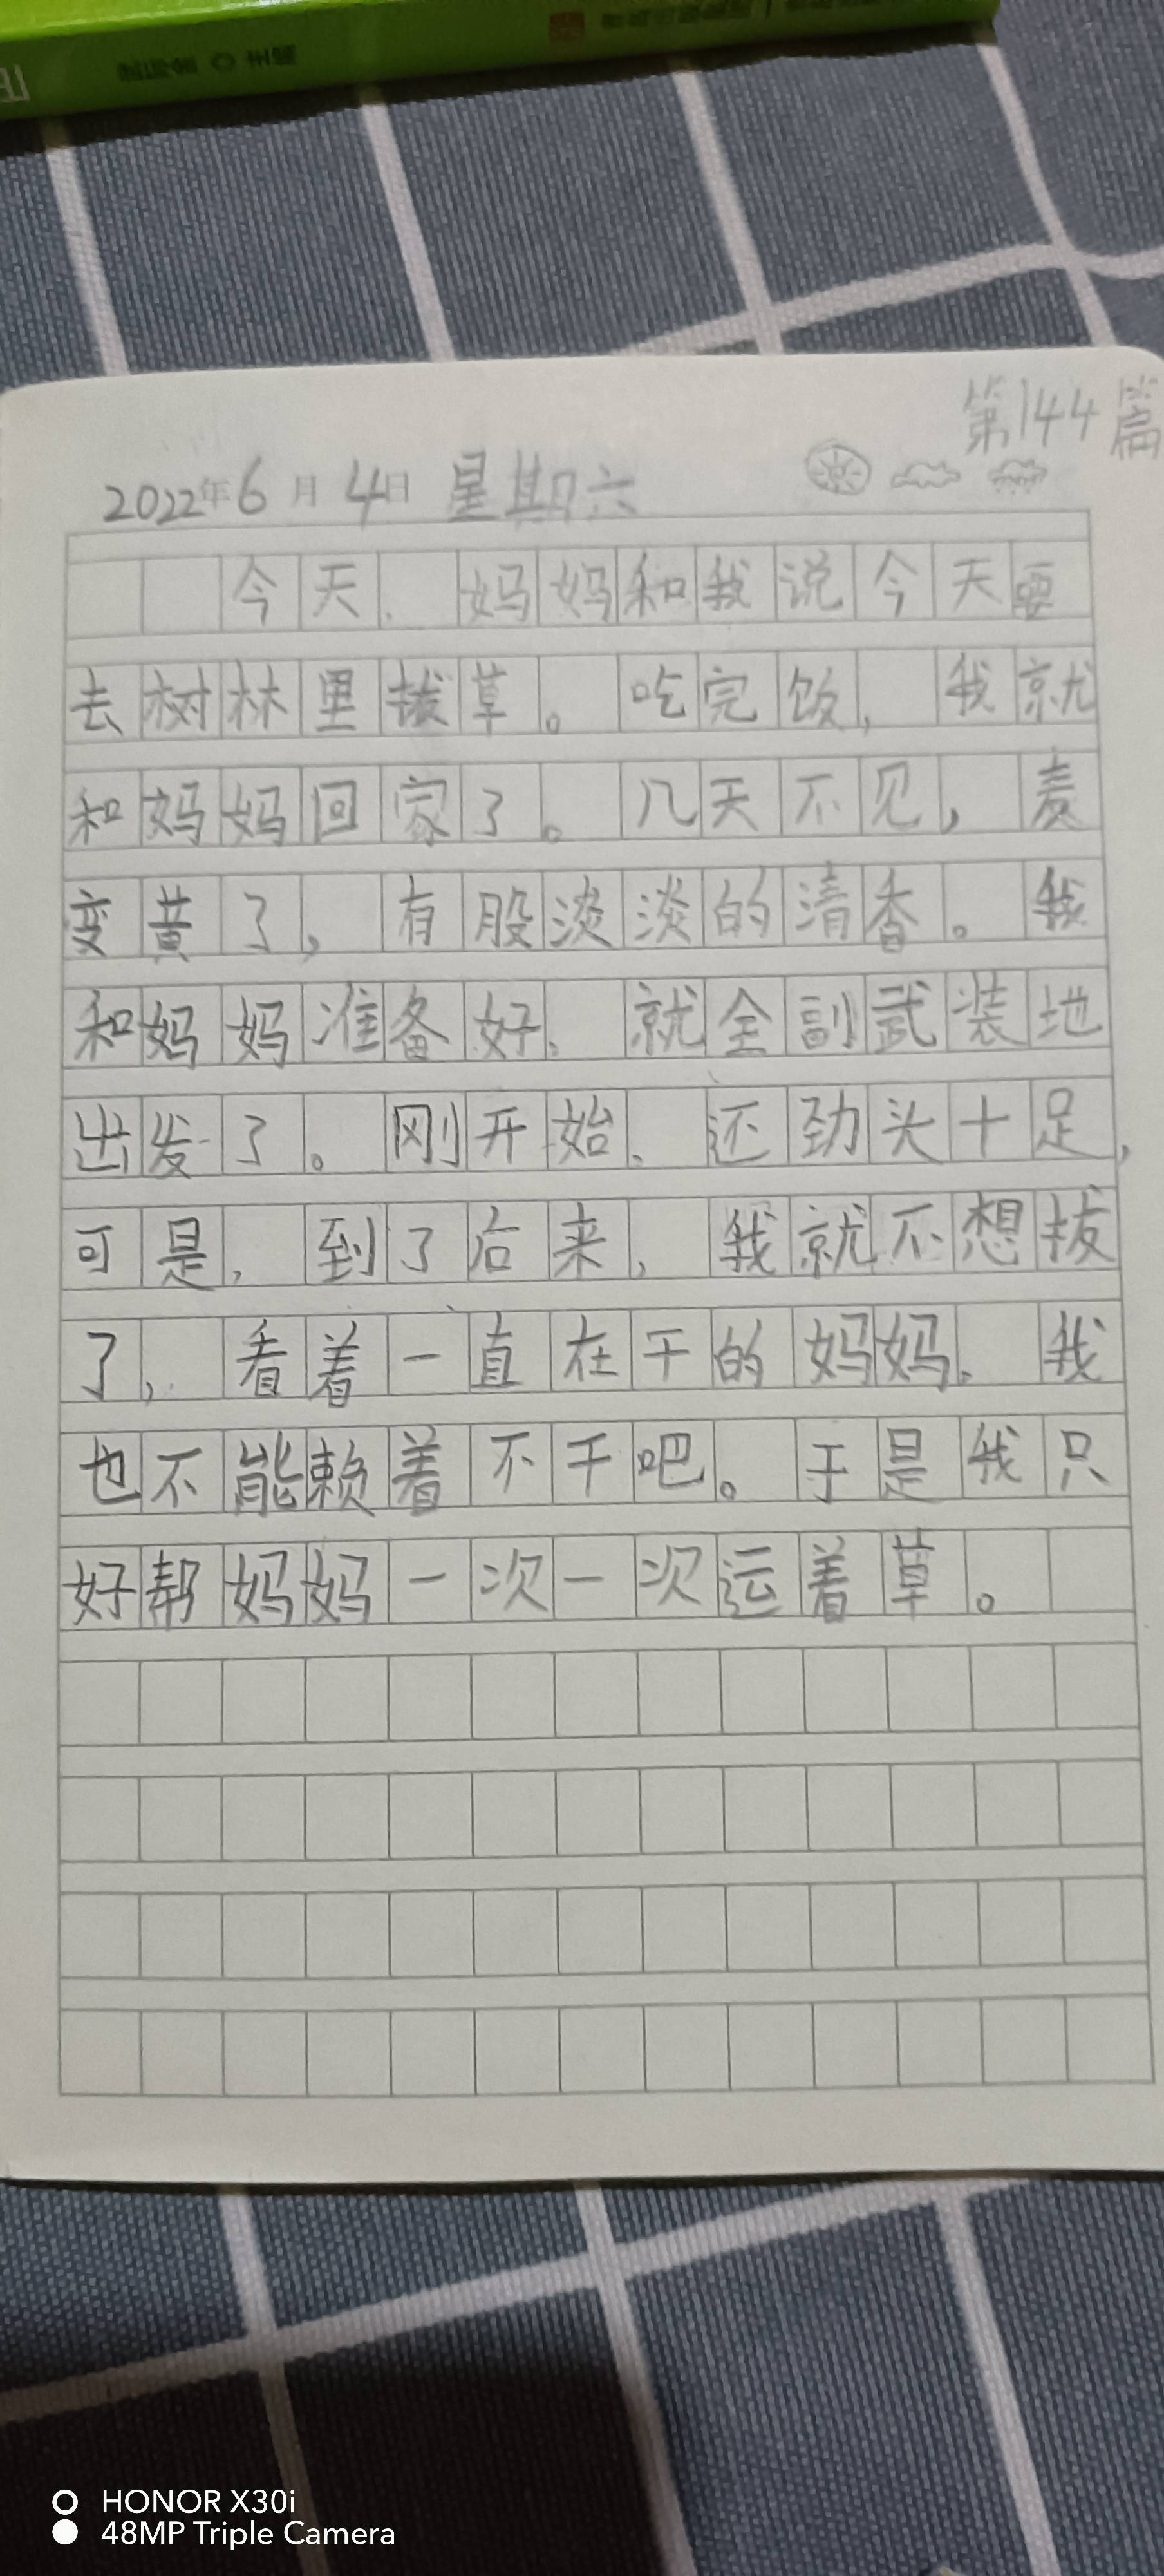 主编
第144篇
2022年6月4日 星期六
今天，妈妈和我说今天要
去树林里拔草。吃完饭，我就
和妈妈回家了。几天不见，麦
变黄了，有股淡淡的清香。我
和妈妈准备好，就全副武装地
出发了。刚开始，还劲头十足，
可是，到了后来，我就不想拔
了，看着一直在干的妈妈，我
也不能赖着不干吧。于是我只
好帮妈妈一次一次运着草。
HONOR X30i
48MP Triple Camera